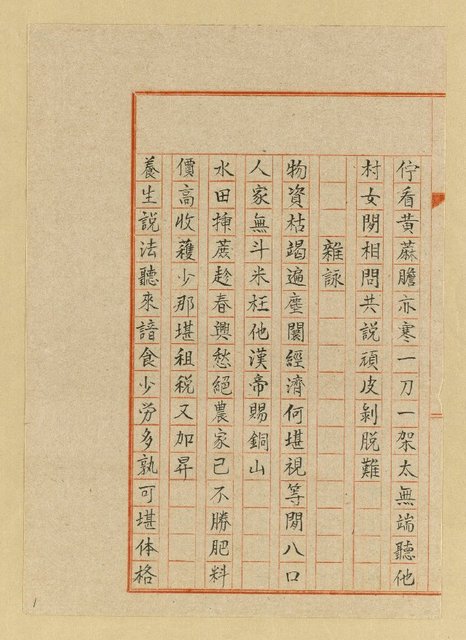 佇看黃蔴膽亦寒一刀一架太無端聽他
村女閒相問共説頑皮剝脱難
雜詠
物資枯竭遍塵闤經濟何堪視等閒八口
人家無斗米枉他漢帝賜銅山
水田揷蔗趁春興愁絕農家已不勝肥料
價高收穫少那堪租税又加昇
養生説法聽來諳食少勞多孰可堪体格
1